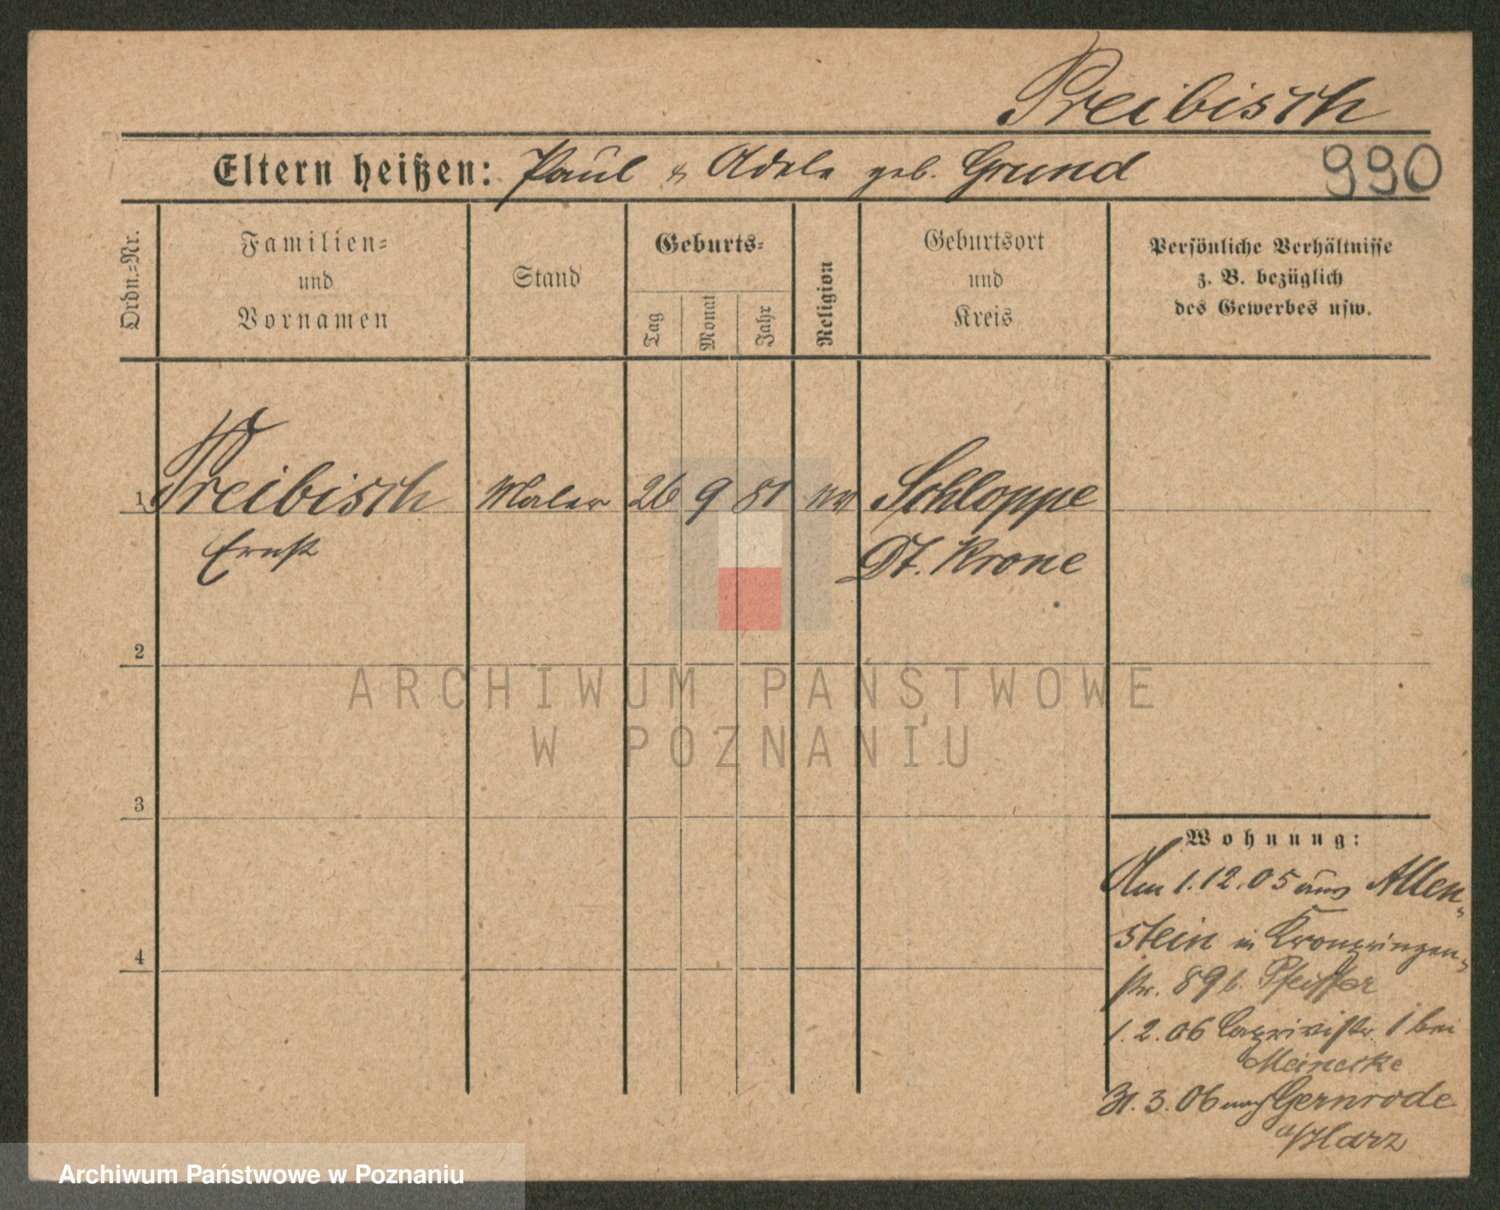 Preibisch
Eltern heißen: Paul & Adele geb. Grund
990
Ordn.-Nr.
Familien-
und
Vornamen
Stand
Geburts-
Tag
Monat
Jahr
Religion
Geburtsort
und
Kreis
Persönliche Verhältnisse
z. B. bezüglich
des Gewerbes usw.
1 Preibisch Maler 26 9 81 ev Schloppe
Ernst Dt. Krone
2
ARCHIWUM PAŃSTWOWE
W POZNANIU
3
4
Wohnung:
Am 1.12.05 aus Allen-
stein in Kronprinzen-
str. 89 b. Pfeiffer
1.2.06 Caprivistr. 1 bei
Meinecke
31.3.06 nach Gernrode
a/Harz
Archiwum Państwowe w Poznaniu